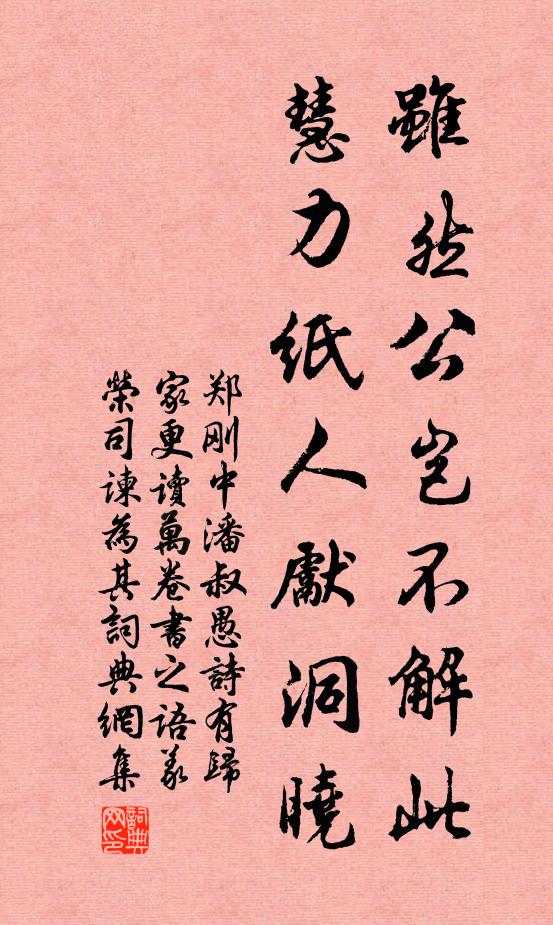 雖然公豈不解此
慧力紙人獻洞曉
郑刚中潘叔愚詩有歸
家更讀萬卷書之語義
榮司諫為其詞典網集
詞典
网印